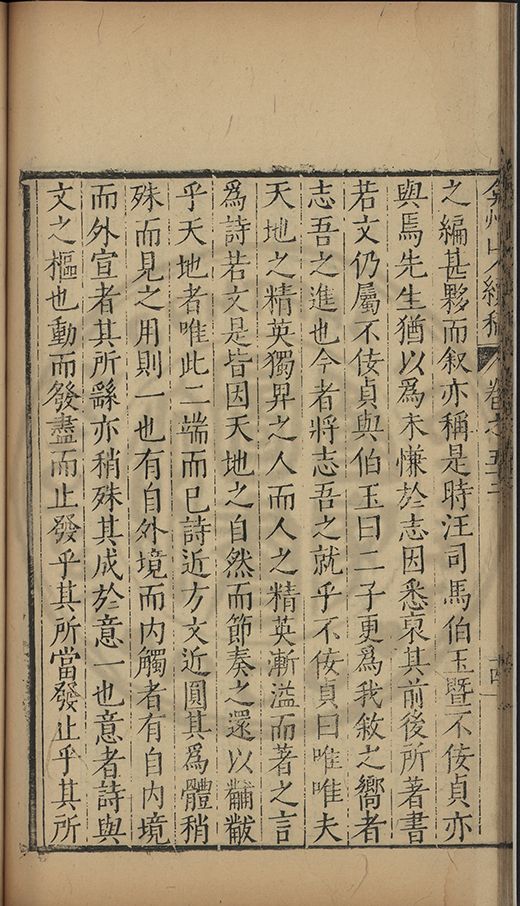 弇州山人續稿 卷之五十二 十四
之編甚夥而叙亦稱是時汪司馬伯玉暨不佞貞亦
與焉先生猶以爲未慊於志因悉裒其前後所著書
若文仍屬不佞貞與伯玉曰二子更爲我敘之嚮者
志吾之進也今者將志吾之就乎不佞貞曰唯唯夫
天地之精英獨畀之人而人之精英漸溢而著之言
爲詩若文是皆因天地之自然而節奏之還以黼黻
乎天地者唯此二端而已詩近方文近圓其爲體稍
殊而見之用則一也有自外境而内觸者有自内境
而外宣者其所繇亦稍殊其成於意一也意者詩與
文之樞也動而發盡而止發乎其所當發止乎其所